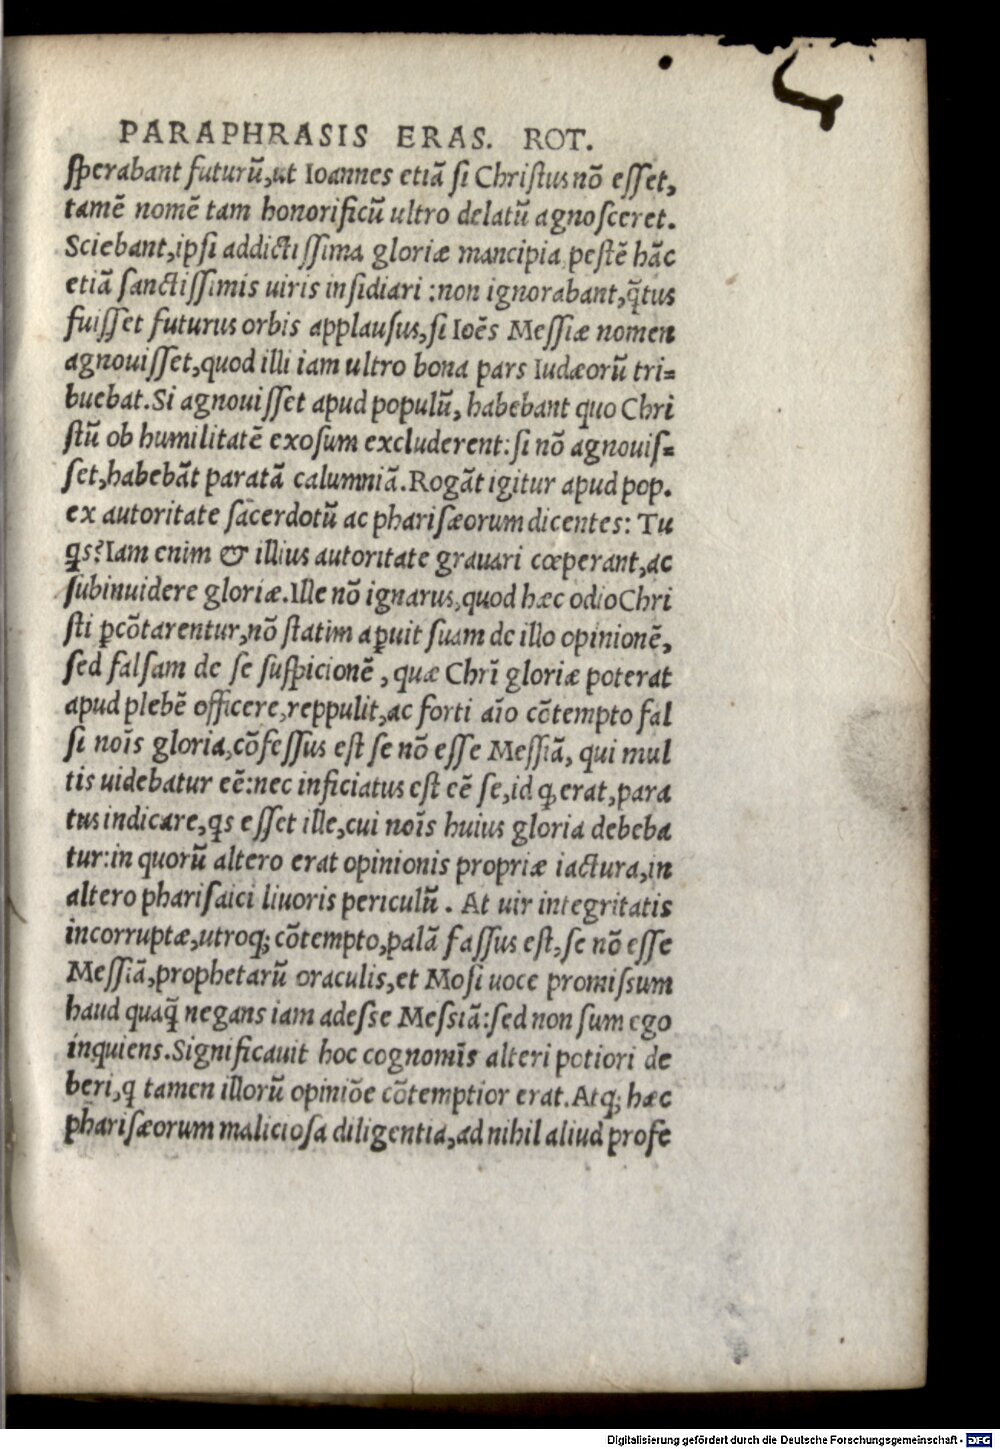 PARAPHRASIS ERAS. ROT.
ſperabant futurū,ut Ioannes etiā ſi Chriſtus nō eſſet,
tamē nomē tam honorificū ultro delatū agnoſceret.
Sciebant,ipſi addictiſſima gloriæ mancipia peſtē hāc
etiā ſanctiſſimis uiris inſidiari :non ignorabant,q̄tus
fuiſſet futurus orbis applauſus,ſi Ioēs Meſſiæ nomen
agnouiſſet,quod illi iam ultro bona pars Iudæorū tri=
buebat.Si agnouiſſet apud populū, habebant quo Chri
ſtū ob humilitatē exoſum excluderent:ſi nō agnouiſ=
ſet,habebāt paratā calumniā.Rogāt igitur apud pop.
ex autoritate ſacerdotū ac phariſæorum dicentes: Tu
ꝗs?Iam enim & illius autoritate grauari cœperant,ac
ſubinuidere gloriæ.Ille nō ignarus,quod hæc odio Chri
ſti ꝑcōtarentur,nō ſtatim aꝑuit ſuam de illo opinionē,
ſed falſam de ſe ſuſpicionē , quæ Chrī gloriæ poterat
apud plebē officere,reppulit,ac forti aīo cōtempto fal
ſi noīs gloria,cōfeſſus eſt ſe nō eſſe Meſſiā, qui mul
tis uidebatur eē:nec inficiatus eſt eē ſe,id ꝙ erat,para
tus indicare,ꝗs eſſet ille,cui noīs huius gloria debeba
tur:in quorū altero erat opinionis propriæ iactura,in
altero phariſaici liuoris periculū . At uir integritatis
incorruptæ,utroq; cōtempto,palā faſſus eſt,ſe nō eſſe
Meſſiā,prophetarū oraculis,et Moſi uoce promiſsum
haud quaq̄ negans iam adeſse Meſsiā:ſed non ſum ego
inquiens.Significauit hoc cognomīs alteri potiori de
beri,q tamen illorū opiniōe cōtemptior erat.Atq; hæc
phariſæorum malicioſa diligentia,ad nihil aliud profe
Digitalisierung gefördert durch die Deutsche Forschungsgemeinschaft - DFG